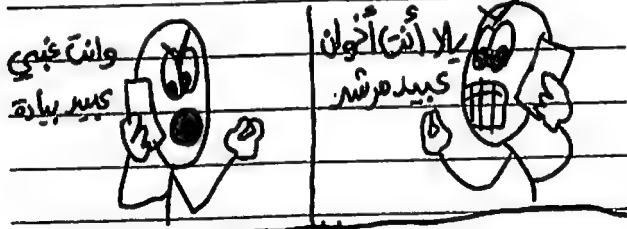 يلا أنت أخوان
عبيد مرشد
وانت غبي
عبيد بيادة